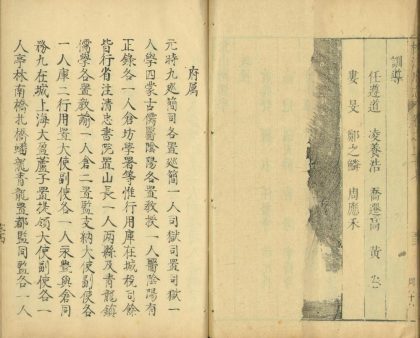 訓導
任遵道 凌養浩 喬遷高 黃
婁旻 鄭之麟 周應禾
府属
元時九巡簡司各置巡簡一人司獄司置司獄一
人學四蒙古儒醫陰陽各置教授一人醫陰陽有
正錄各一人倉坊學署等惟行用庫在城稅司餘
皆行省注清忠書院置山長一人兩縣及青龍鎮
儒學各置教諭一人倉二置監支納大使副使各
一人庫二行用置大使副使各一人永豐與倉同
務九在城上海大盈蘆子置提領大使副使各一
人亭林南橋北橋蟠龍青龍置都監同監各一人